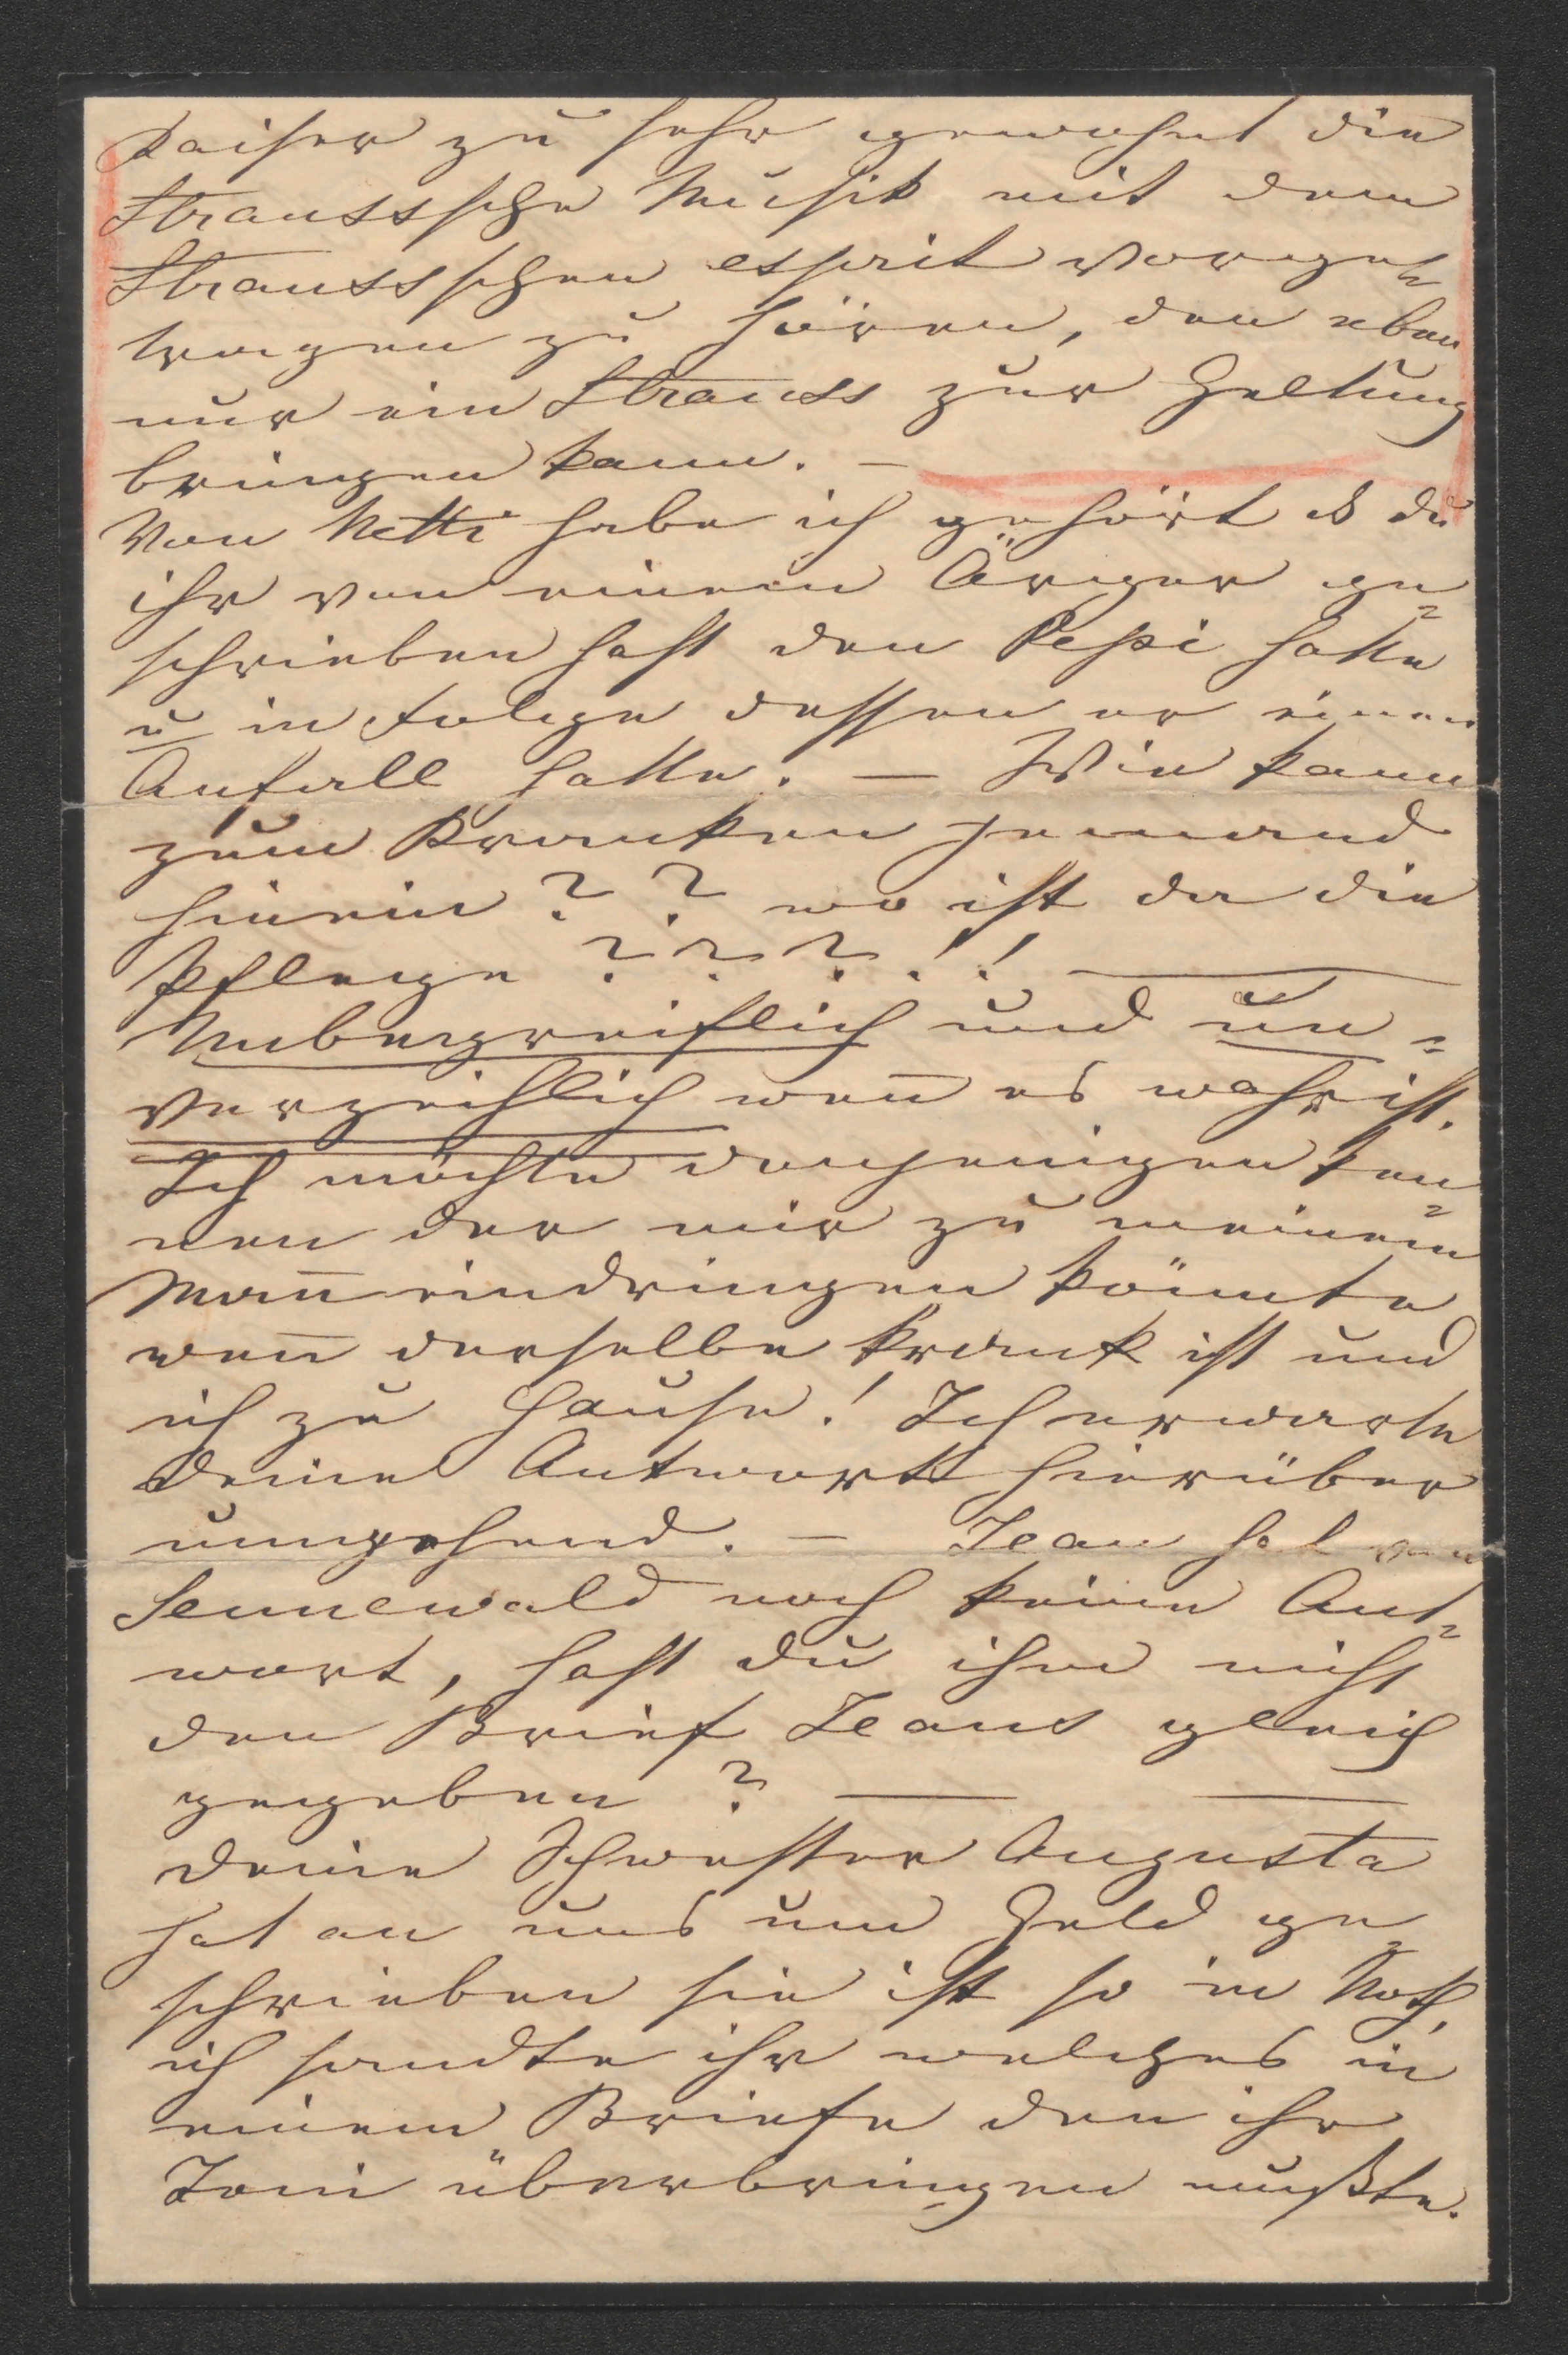 Kaiser zu sehr gewohnt die
Strausssche Musik mit dem
Straussschen esprit vorge=
tragen zu hören, den eben
nur ein Strauss zur Geltung
bringen kann. —
Von Netti habe ich gehört daß du
ihr von einem Ärger ge=
schrieben hast den Pepi hatte
u in Folge dessen er einen
Anfall hatte. — Wie kann
zum Kranken jemand
hinein ? ? wo ist da die
Pflege ? ? ? ! ! —
Unbegreiflich und un=
verzeihlich wen̄ es wahr ist.
Ich möchte denjenigen ken=
nen der mir zu meinem
Man̄ eindringen könnte
wen̄ derselbe krank ist und
ich zu Hause! Ich erwarte
deine Antwort hierüber
umgehend. — Jean hat von
Sennewald noch keine Ant=
wort, hast du ihm nicht
den Brief Jeans gleich
gegeben ? — —
Deine Schwester Augusta
hat an uns um Geld ge=
schrieben sie ist so in Noth,
ich sandte ihr welches in
einem Briefe den ihr
Toni überbringen mußte.